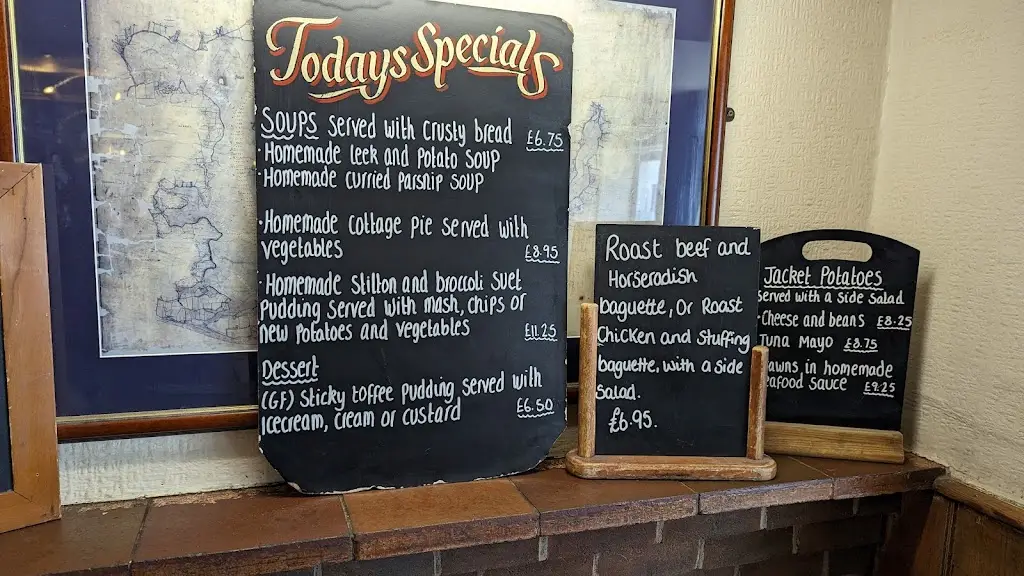 Todays Specials
SOUPS served with crusty bread £6.75
·Homemade leek and Potato soup
·Homemade curried Parsnip soup
·Homemade cottage Pie served with
vegetables £8.95
·Homemade stilton and broccoli suet
Pudding served with mash, chips or
new Potatoes and vegetables £11.25
Dessert
(GF) Sticky toffee Pudding served with
icecream, cream or custard £6.50
Roast beef and
Horseradish
baguette, Or Roast
Chicken and Stuffing
baguette, with a side
Salad.
£6.95.
Jacket Potatoes
served with a Side Salad
·Cheese and beans £8.25
Tuna Mayo £8.75
in homemade
Sauce £9.25